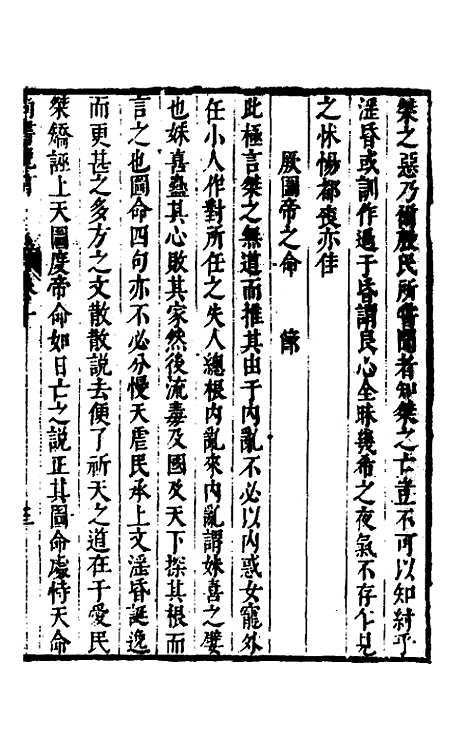 桀之惡乃爾殷民所嘗聞者知桀之亡豈不可以知紂乎
淫昏或訓作過于昏謂良心全昧幾希之夜氣不存乍見
之怵惕都喪亦佳
厥圖帝之命　節
此極言桀之無道而推其由于內亂不必以內惑女寵外
任小人作對所任之失人總根內亂來內亂謂妹喜之嬖
也妹喜蠱其心敗其家然後流毒及國及天下探其根而
言之也圖命四句亦不必分慢天虐民承上文淫昏誕逸
而更甚之多方之文散散說去便了祈天之道在于愛民
桀矯誣上天圖度帝命如日亡之說正其圖命處恃天命